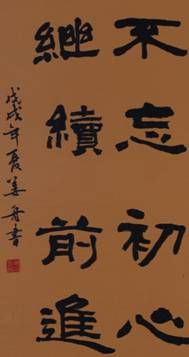 不忘初心
繼續前進
戊戌年夏姜舟書